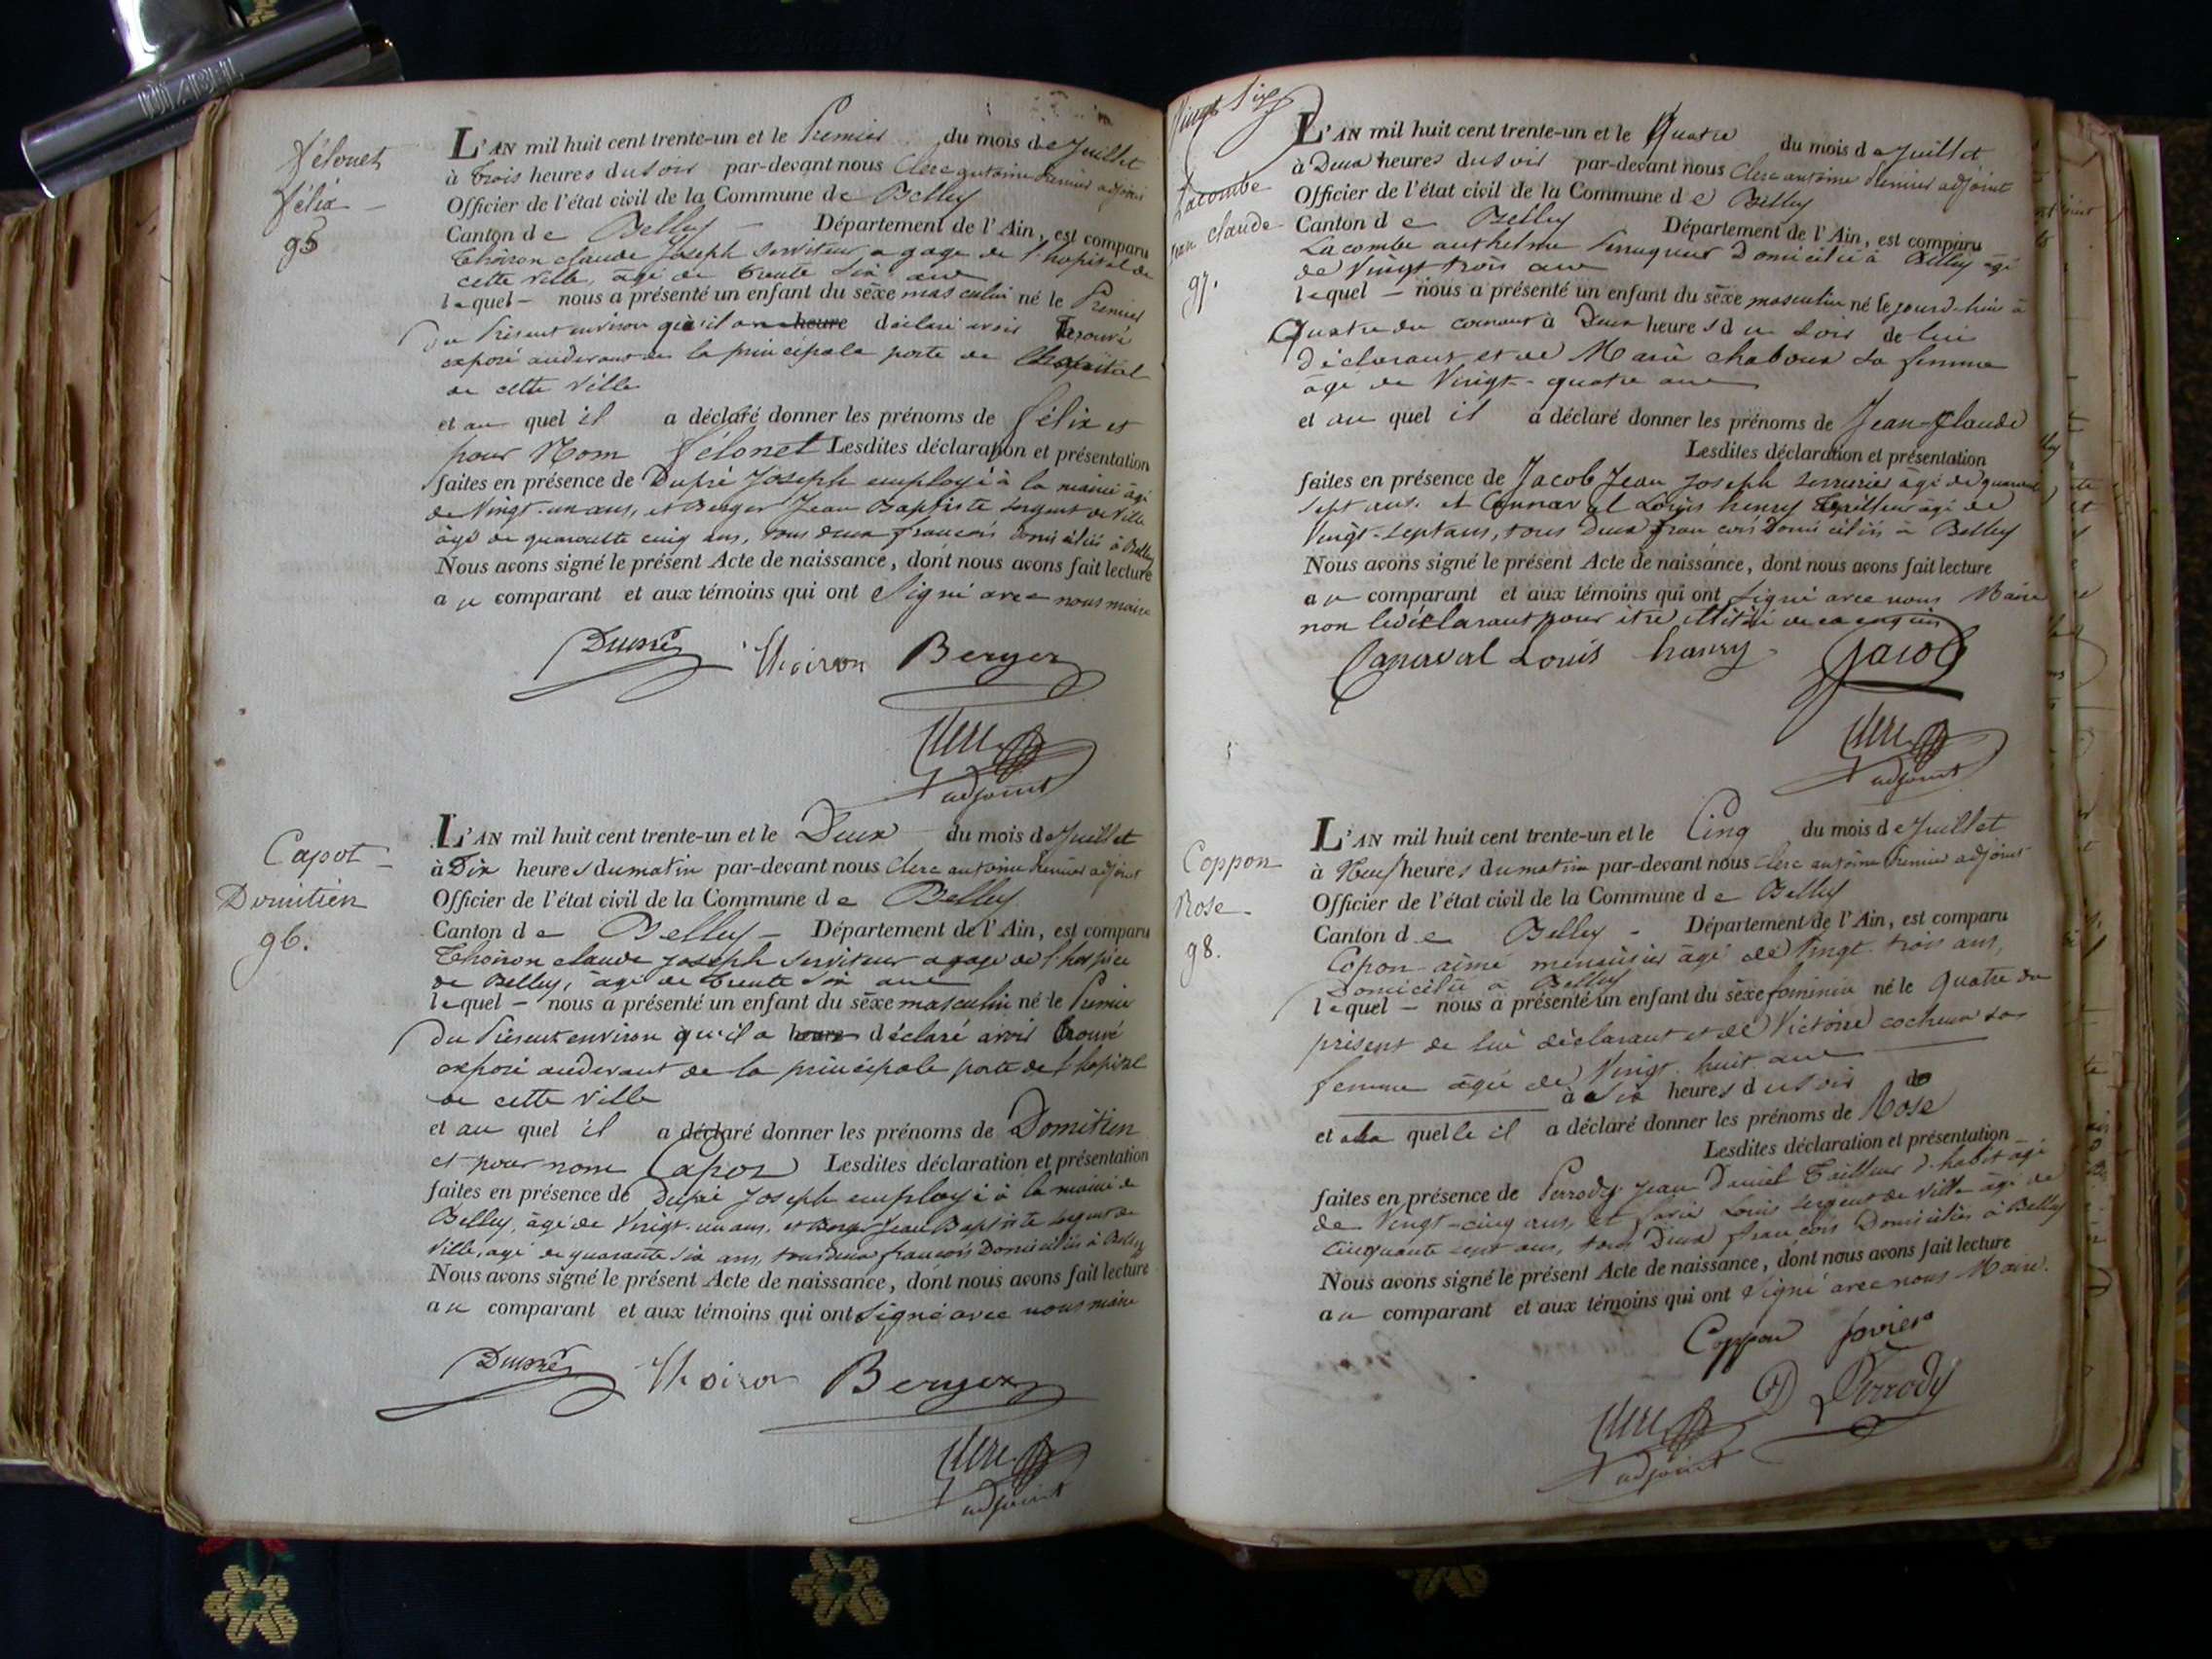 NIABEL
Félonet
Félix
95
L'AN mil huit cent trente-un et le Premier du mois de Juillet
à Trois heures du soir par-devant nous Clerc antoine Premier adjoint
Officier de l'état civil de la Commune de Belley
Canton de Belley Département de l'Ain, est comparu
Thoiron claude Joseph serviteur a gage de l'hopital de
cette ville, âgé de trente six ans
lequel nous a présenté un enfant du sèxe masculin né le Premier
du Présent environ qu'il a heure déclaré avoir trouvé
exposé audevant de la principale porte de l'hopital
de cette ville
et au quel il a déclaré donner les prénoms de Félix et
pour Nom Félonet Lesdites déclaration et présentation
faites en présence de Dupré Joseph employé à la mairie âgé
de Vingt-un ans, et Berger Jean Baptiste sergent de ville
âgé de quarante cinq ans, tous deux francois domiciliés à Belley
Nous avons signé le présent Acte de naissance, dont nous avons fait lecture
au comparant et aux témoins qui ont Signé avec nous maire
Dupré Thoiron Berger
Clerc
adjoint
Capot
Domitien
96.
L'AN mil huit cent trente-un et le Deux du mois de Juillet
à Dix heures du matin par-devant nous Clerc antoine Premier adjoint
Officier de l'état civil de la Commune de Belley
Canton de Belley Département de l'Ain, est comparu
Thoiron claude joseph serviteur a gage de l'hospice
de Belley, âgé de trente six ans
lequel nous a présenté un enfant du sèxe masculin né le Premier
du Présent environ qu'il a heure déclaré avoir trouvé
exposé audevant de la principale porte de l'hopital
de cette ville
et au quel il a déclaré donner les prénoms de Domitien
et pour nom Capot Lesdites déclaration et présentation
faites en présence de Dupré Joseph employé à la mairie de
Belley, âgé de Vingt-un ans, et Berger Jean Baptiste sergent de
Ville, agé de quarante six ans, tous deux francois Domiciliés à Belley
Nous avons signé le présent Acte de naissance, dont nous avons fait lecture
au comparant et aux témoins qui ont signé avec nous maire
Dupré Thoiron Berger
Clerc
adjoint
Vingt Six
Lacombe
Jean Claude
97.
L'AN mil huit cent trente-un et le Quatre du mois de Juillet
à Deux heures du soir par-devant nous Clerc antoine Premier adjoint
Officier de l'état civil de la Commune de Belley
Canton de Belley Département de l'Ain, est comparu
Lacombe anthelme Perruquier Domicilié à Belley âgé
de Vingt trois ans
lequel nous a présenté un enfant du sèxe masculin né le jourd-hui à
Quatre du courant à Deux heures du soir de lui
déclarant et de Marie chaboux sa femme
âgé de Vingt-quatre ans
et au quel il a déclaré donner les prénoms de Jean-Claude
Lesdites déclaration et présentation
faites en présence de Jacob Jean Joseph serrurier âgé de quarante
sept ans, et Canaval Louis henry Tailleur âgé de
Vingt-sept ans, tous Deux francois Domiciliés à Belley
Nous avons signé le présent Acte de naissance, dont nous avons fait lecture
au comparant et aux témoins qui ont signé avec nous Maire
non le déclarant pour être illitéré de ce enquis
Canaval Louis henry Jacob
Clerc
adjoint
Coppon
Rose
98.
L'AN mil huit cent trente-un et le Cinq du mois de Juillet
à Neuf heures du matin par-devant nous Clerc antoine Premier adjoint
Officier de l'état civil de la Commune de Belley
Canton de Belley Département de l'Ain, est comparu
Copon aimé menuisier âgé de Vingt trois ans,
Domicilié a Belley
lequel nous a présenté un enfant du sèxe féminin né le Quatre du
présent de lui déclarant et de Victoire cocheux sa
femme âgée de Vingt huit ans
à Six heures du soir de
et a la quelle il a déclaré donner les prénoms de Rose
Lesdites déclaration et présentation
faites en présence de Perrody Jean Daniel Tailleur d'habit âgé
de Vingt-cinq ans, et favier Louis sergent de Ville âgé de
Cinquante sept ans, tous Deux francois Domiciliés à Belley
Nous avons signé le présent Acte de naissance, dont nous avons fait lecture
au comparant et aux témoins qui ont signé avec nous Maire.
Coppon favier
D Perrody
Clerc
adjoint